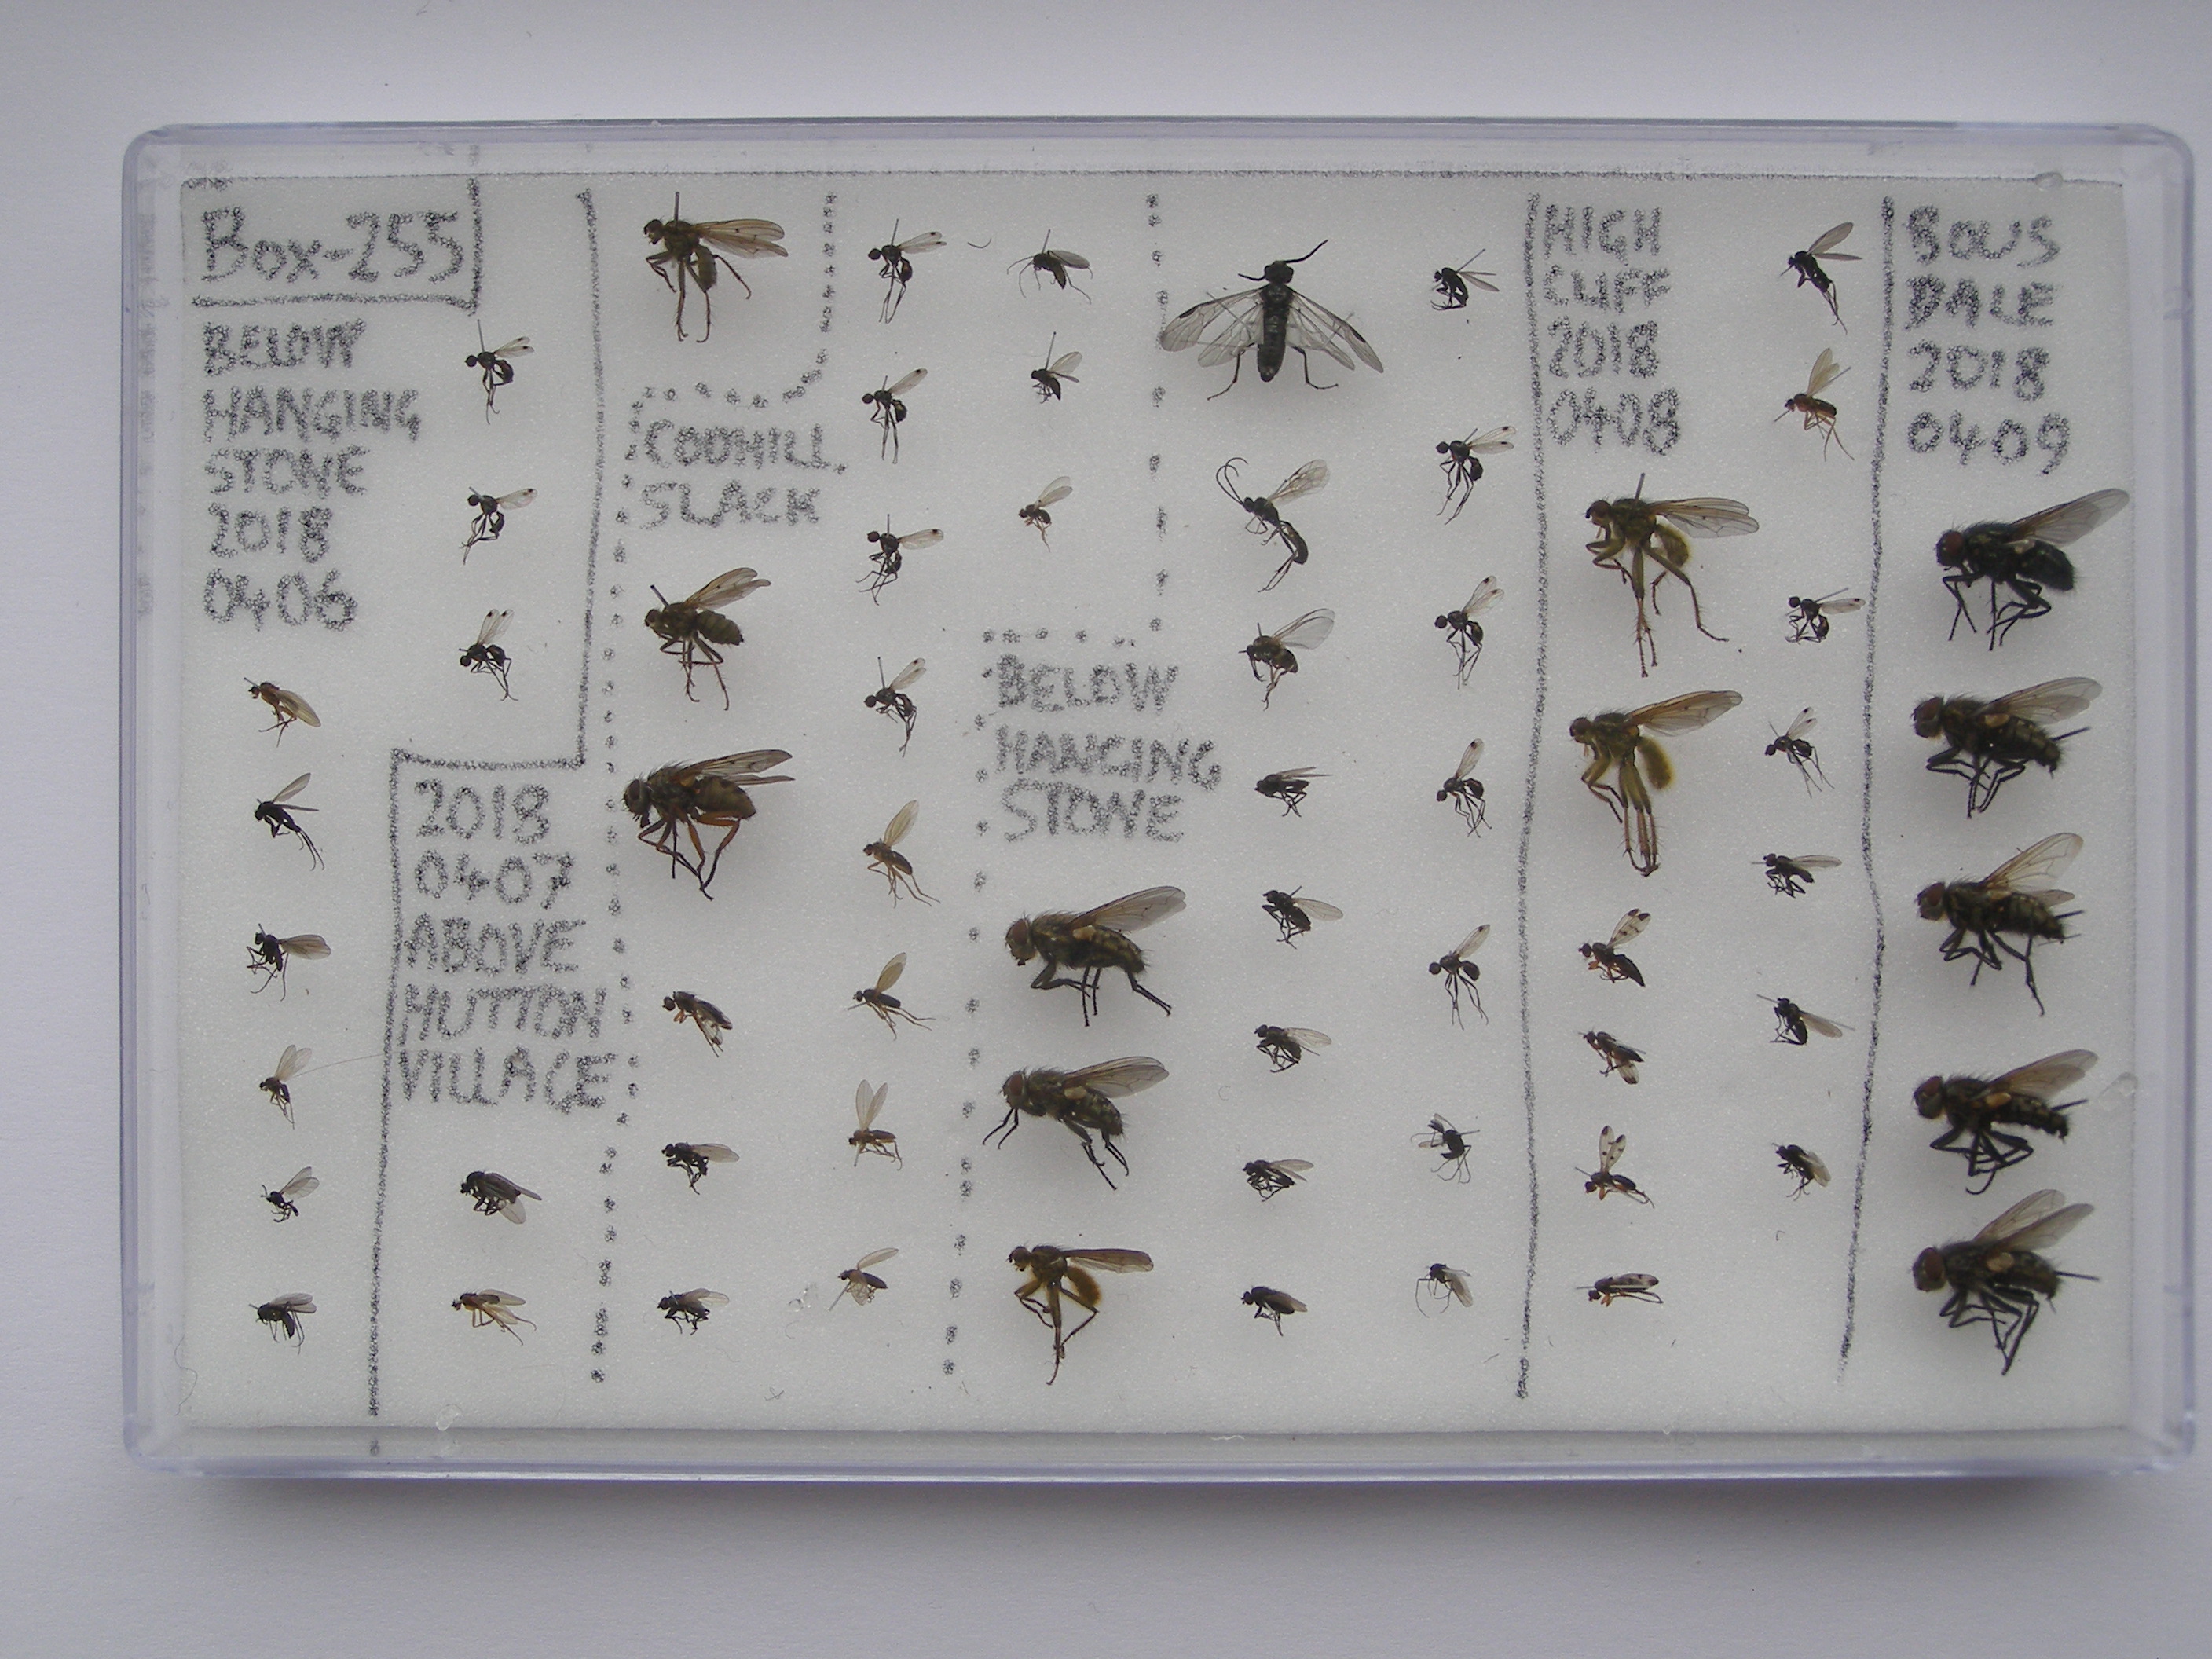 Box-255
BELOW
HANGING
STONE
2018
0406
2018
0407
ABOVE
HUTTON
VILLAGE
CODHILL
SLACK
BELOW
HANGING
STONE
HIGH
CLIFF
2018
0408
BOUS
DALE
2018
0409